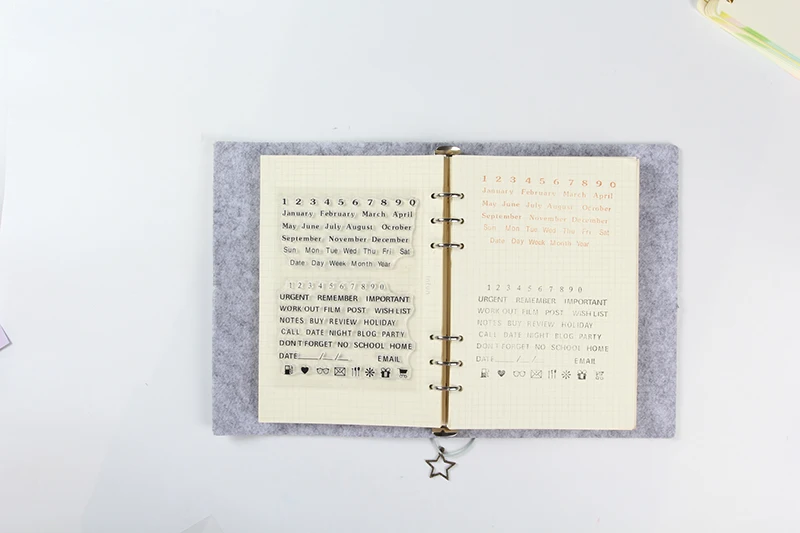 1 2 3 4 5 6 7 8 9 0
January February March April
May June July August October
September November December
Sun Mon Tue Wed Thu Fri Sat
Date Day Week Month Year
1 2 3 4 5 6 7 8 9 0
URGENT REMEMBER IMPORTANT
WORK OUT FILM POST WISH LIST
NOTES BUY REVIEW HOLIDAY
CALL DATE NIGHT BLOG PARTY
DON'T FORGET NO SCHOOL HOME
DATE___/__/__ EMAIL
1 2 3 4 5 6 7 8 9 0
January February March April
May June July August October
September November December
Sun Mon Tue Wed Thu Fri Sat
Date Day Week Month Year
1 2 3 4 5 6 7 8 9 0
URGENT REMEMBER IMPORTANT
WORK OUT FILM POST WISH LIST
NOTES BUY REVIEW HOLIDAY
CALL DATE NIGHT BLOG PARTY
DON'T FORGET NO SCHOOL HOME
DATE___/__/__ EMAIL